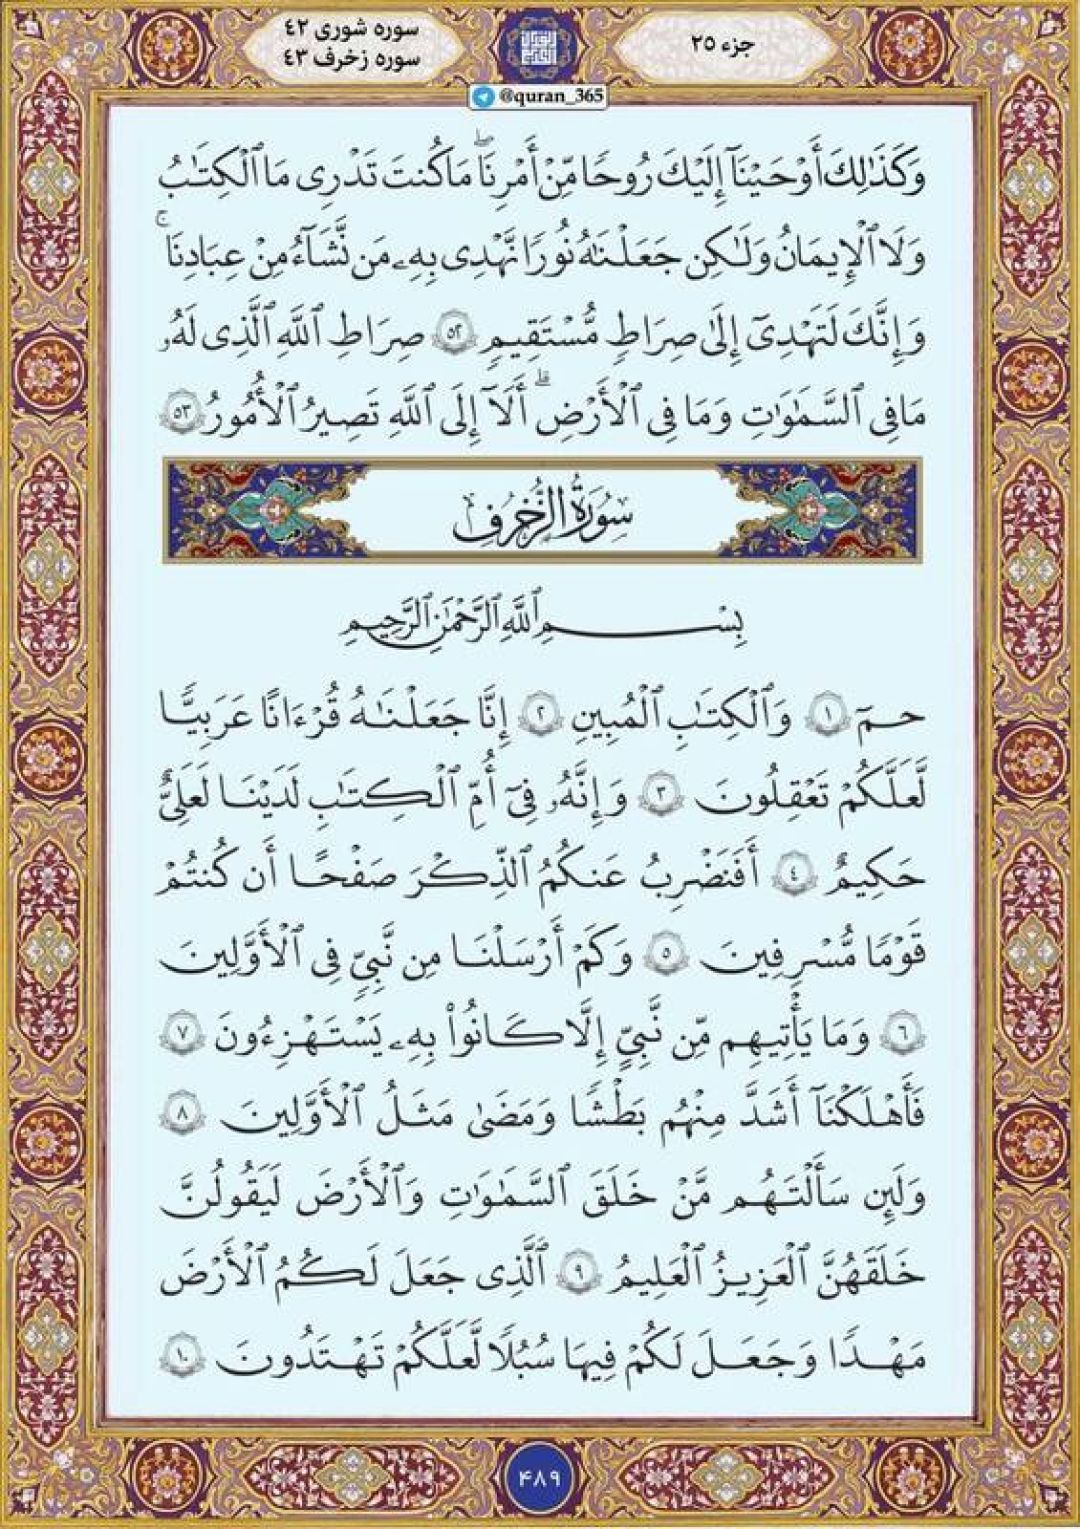 جزء ۲۵
سوره شوری ۴۲
سوره زخرف ۴۳
@quran_365
وَكَذَٰلِكَ أَوْحَيْنَآ إِلَيْكَ رُوحًا مِّنْ أَمْرِنَا ۖ مَا كُنتَ تَدْرِى مَا ٱلْكِتَٰبُ
وَلَا ٱلْإِيمَٰنُ وَلَٰكِن جَعَلْنَٰهُ نُورًا نَّهْدِى بِهِۦ مَن نَّشَآءُ مِنْ عِبَادِنَا ۚ
وَإِنَّكَ لَتَهْدِىٓ إِلَىٰ صِرَاطٍ مُّسْتَقِيمٍ ٥٢ صِرَاطِ ٱللَّهِ ٱلَّذِى لَهُۥ
مَا فِى ٱلسَّمَٰوَٰتِ وَمَا فِى ٱلْأَرْضِ ۗ أَلَآ إِلَى ٱللَّهِ تَصِيرُ ٱلْأُمُورُ ٥٣
سُورَةُ الزُّخْرُفِ
بِسْمِ ٱللَّهِ ٱلرَّحْمَٰنِ ٱلرَّحِيمِ
حمٓ ١ وَٱلْكِتَٰبِ ٱلْمُبِينِ ٢ إِنَّا جَعَلْنَٰهُ قُرْءَٰنًا عَرَبِيًّا
لَّعَلَّكُمْ تَعْقِلُونَ ٣ وَإِنَّهُۥ فِىٓ أُمِّ ٱلْكِتَٰبِ لَدَيْنَا لَعَلِىٌّ
حَكِيمٌ ٤ أَفَنَضْرِبُ عَنكُمُ ٱلذِّكْرَ صَفْحًا أَن كُنتُمْ
قَوْمًا مُّسْرِفِينَ ٥ وَكَمْ أَرْسَلْنَا مِن نَّبِىٍّ فِى ٱلْأَوَّلِينَ
٦ وَمَا يَأْتِيهِم مِّن نَّبِىٍّ إِلَّا كَانُوا۟ بِهِۦ يَسْتَهْزِءُونَ ٧
فَأَهْلَكْنَآ أَشَدَّ مِنْهُم بَطْشًا وَمَضَىٰ مَثَلُ ٱلْأَوَّلِينَ ٨
وَلَئِن سَأَلْتَهُم مَّنْ خَلَقَ ٱلسَّمَٰوَٰتِ وَٱلْأَرْضَ لَيَقُولُنَّ
خَلَقَهُنَّ ٱلْعَزِيزُ ٱلْعَلِيمُ ٩ ٱلَّذِى جَعَلَ لَكُمُ ٱلْأَرْضَ
مَهْدًا وَجَعَلَ لَكُمْ فِيهَا سُبُلًا لَّعَلَّكُمْ تَهْتَدُونَ ١٠
۴۸۹